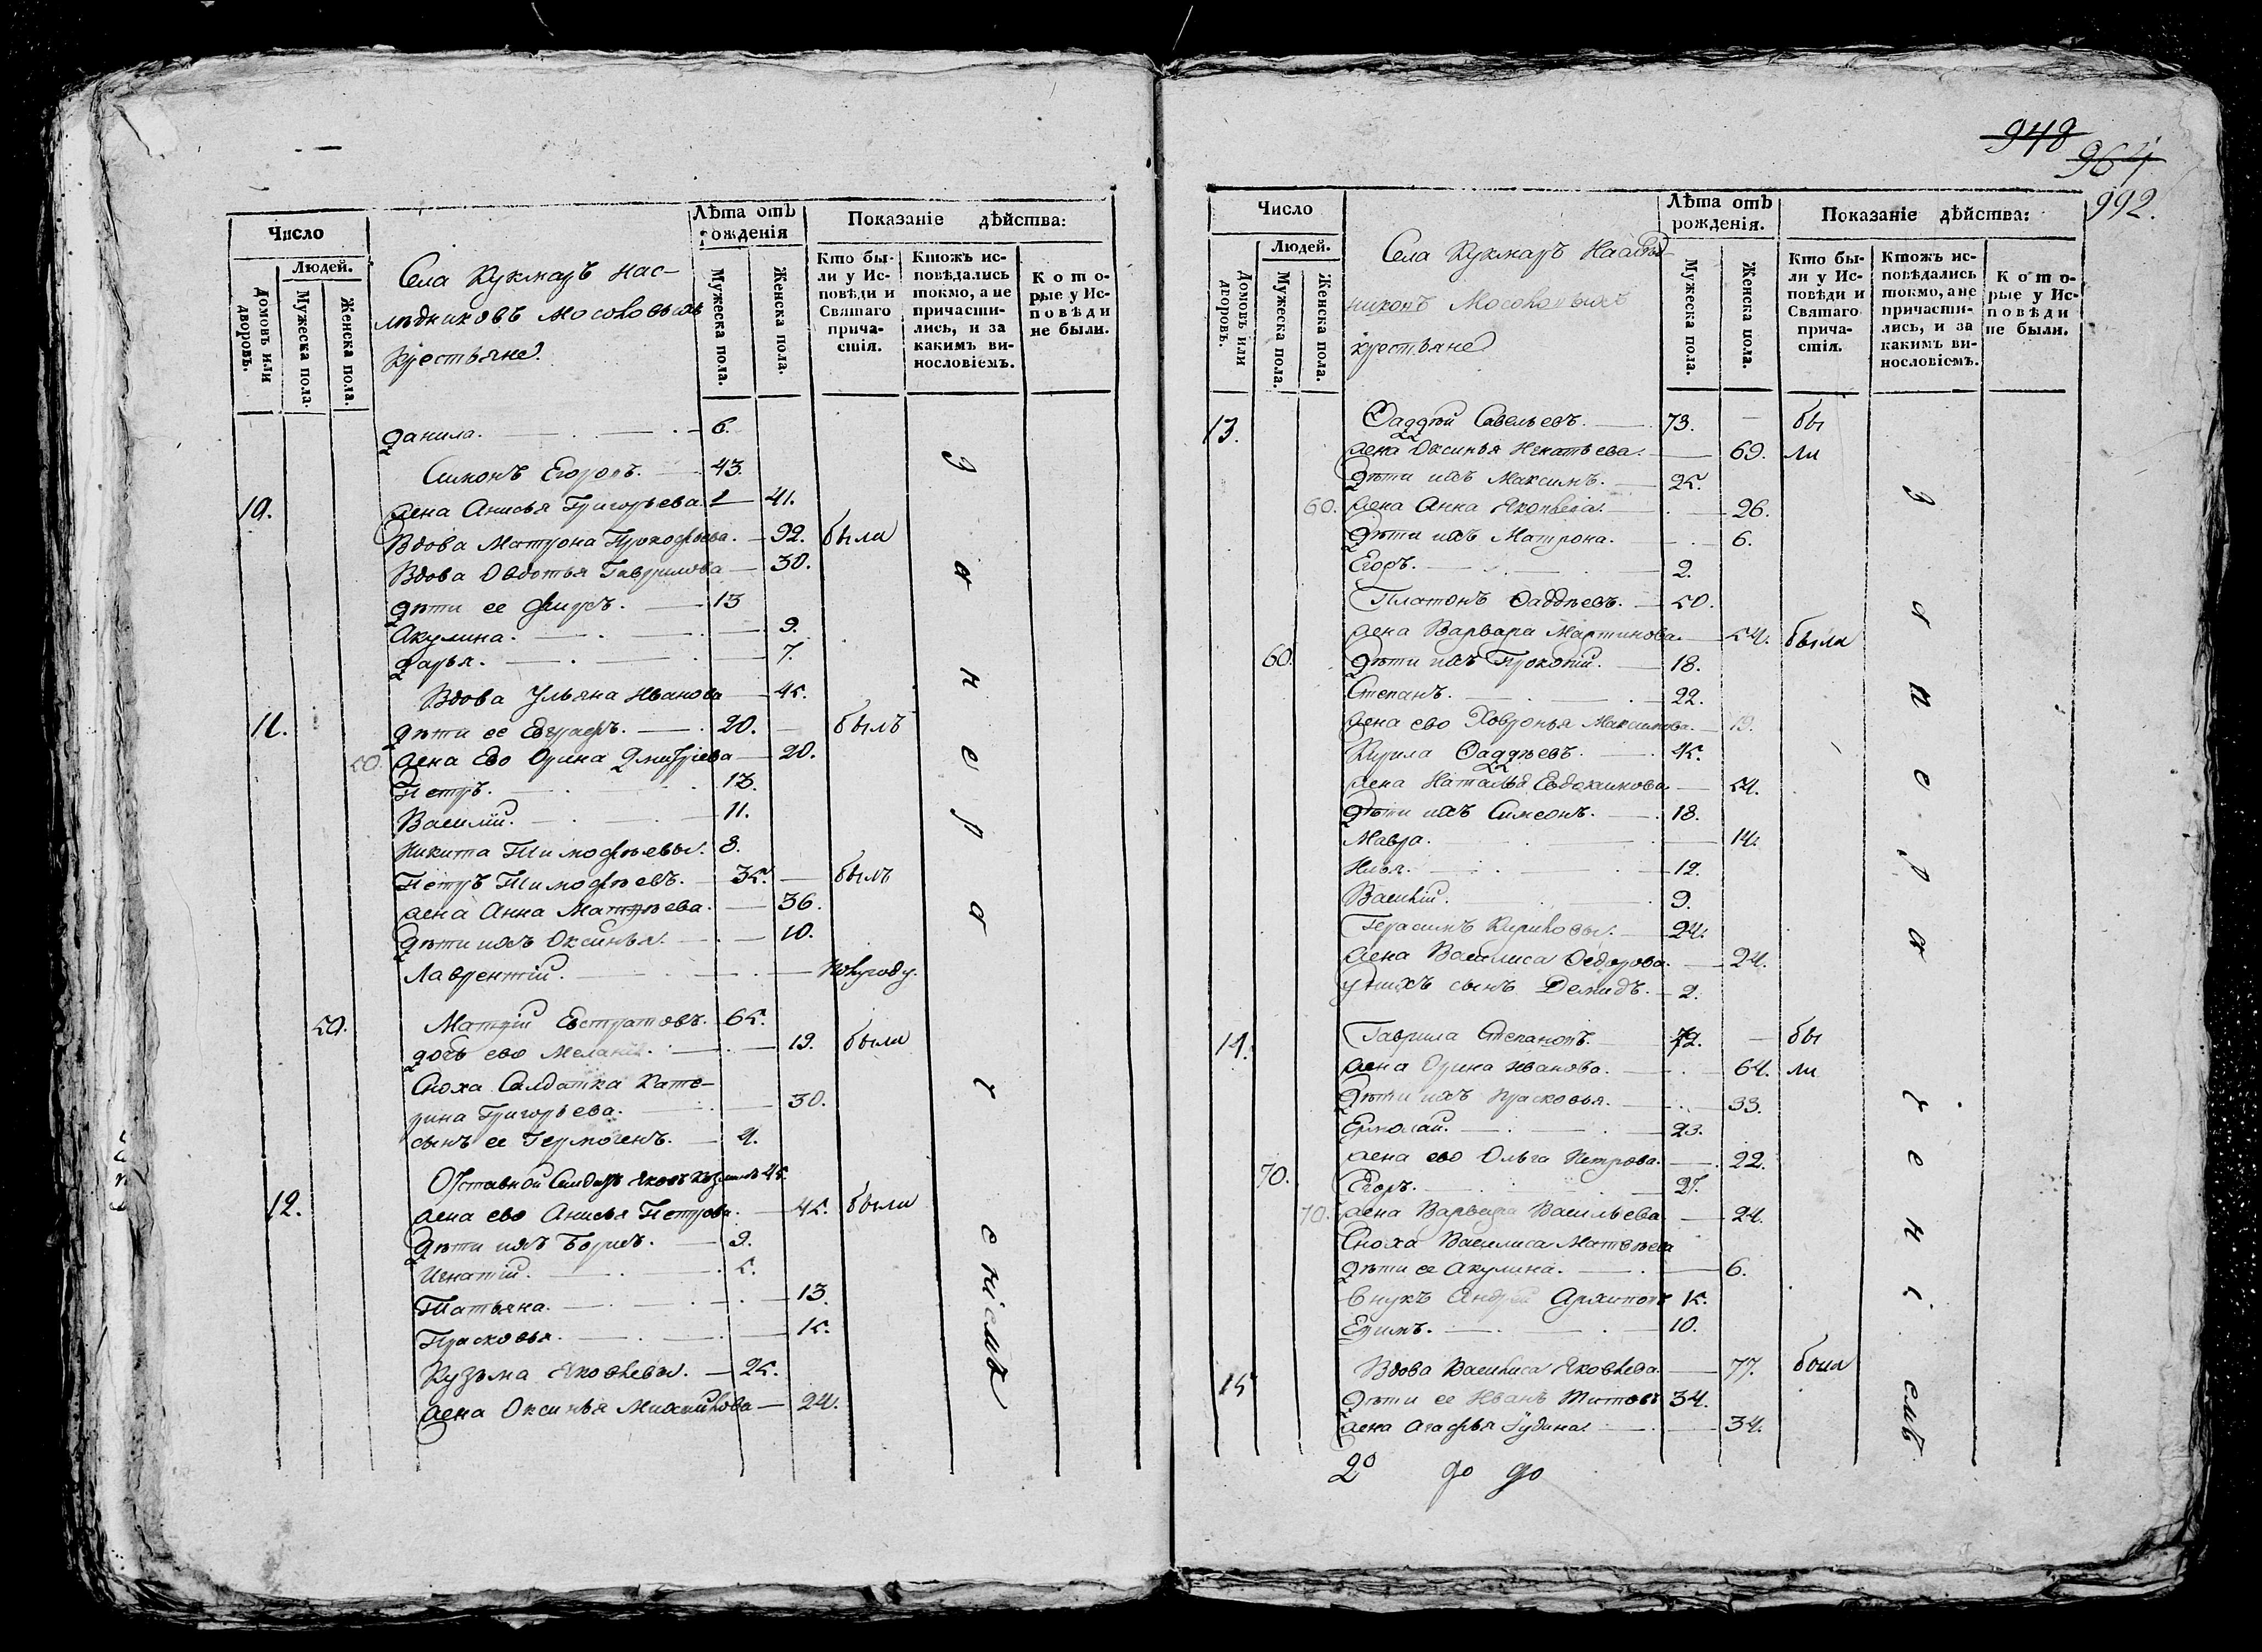 Число
Людей.
Домовъ или дворовъ.
Мужеска пола.
Женска пола.
Села Кукмаръ нас-
лѣдниковъ Мосоловыхъ
крестьяне.
Лѣта отъ рожденія
Мужеска пола.
Женска пола.
Показаніе дѣйства:
Кто бы-
ли у Ис-
повѣди и
Святаго
прича-
стія.
Ктожъ ис-
повѣдались
токмо, а не
причасти-
лись, и за
какимъ ви-
нословіемъ.
Кото-
рые у Ис-
повѣди
не были.
Данила. 6.
Симонъ Егоровъ. 43.
10. жена Анисья Григорьева. 41.
Вдова Матрона Прокофьева. 92. были
Вдова Овдотья Гаврилова 30.
дѣти ее 13
Акулина. 9.
Дарья. 7.
Вдова Ульяна Иванова 45.
11. дѣти ее Евграфъ. 20. былъ
50. жена Ево Орина Дмитріева 20.
Петръ. 13.
Василій. 11.
Никита Тимофѣевы. 8.
Петръ Тимофѣевъ. 35. былъ
жена Анна Матвѣева. 36.
дѣти ихъ Оксинья. 10.
Лаврентій. полугоду.
50. Матвій Евстратовъ. 65.
дочь ево Меланія. 19. были
Сноха Салдатка Кате-
рина Григорьева. 30.
сынъ ее Гермогенъ. 4.
Отставной Салдатъ Яковъ 45.
12. жена ево Анисья Петрова. 45. были
дѣти ихъ Борисъ. 9.
Игнатій. 5.
Татьяна. 13.
Прасковья. 15.
Кузьма Яковлевы. 25.
жена Оксинья Михайлова 24.
за не ра че ніемъ
948
964
992.
Число
Людей.
Домовъ или дворовъ.
Мужеска пола.
Женска пола.
Села Кукмаръ Наслѣд-
никовъ Мосоловыхъ
крестьяне
Лѣта отъ рожденія.
Мужеска пола.
Женска пола.
Показаніе дѣйства:
Кто бы-
ли у Ис-
повѣди и
Святаго
прича-
стія.
Ктожъ ис-
повѣдались
токмо, а не
причасти-
лись, и за
какимъ ви-
нословіемъ.
Кото-
рые у Ис-
повѣди
не были.
13. Фаддѣй Савельевъ. 73. бы
жена Оксинья Игнатьева. 69. ли
дѣти ихъ Максимъ. 25.
60. жена Анна Яковлева. 26.
дѣти ихъ Матрона. 6.
Егоръ. 2.
Платонъ Фаддѣевъ. 50.
жена Варвара Мартинова. 54. были
60. дѣти ихъ Прокопій. 18.
Степанъ. 22.
жена ево Ховронья Максимова. 19.
Кирила Фаддѣевъ. 45.
жена Наталья Евдокимова 54.
дѣти ихъ Симеонъ. 18.
Мавра. 14.
Илья. 12.
Василій. 9.
Герасимъ Кириловы. 24.
жена Василиса Федорова. 24.
у нихъ сынъ Демидъ. 2.
14. Гаврила Степановъ. 72. бы
жена Орина Иванова. 64. ли
дѣти ихъ Прасковья. 33.
Ермолай. 23.
жена ево Ольга Петрова. 22.
70. Егоръ. 27.
70. жена Варвара Васильева. 24.
Сноха Василиса Матвѣева
дѣти ее Акулина. 6.
внукъ Андрей Архиповъ 15.
Ефимъ. 10.
15 Вдова Василиса Яковлева. 77. были
дѣти ее Иванъ Титовъ 34.
жена Агафья Гудина. 34.
за не ра че ні емъ